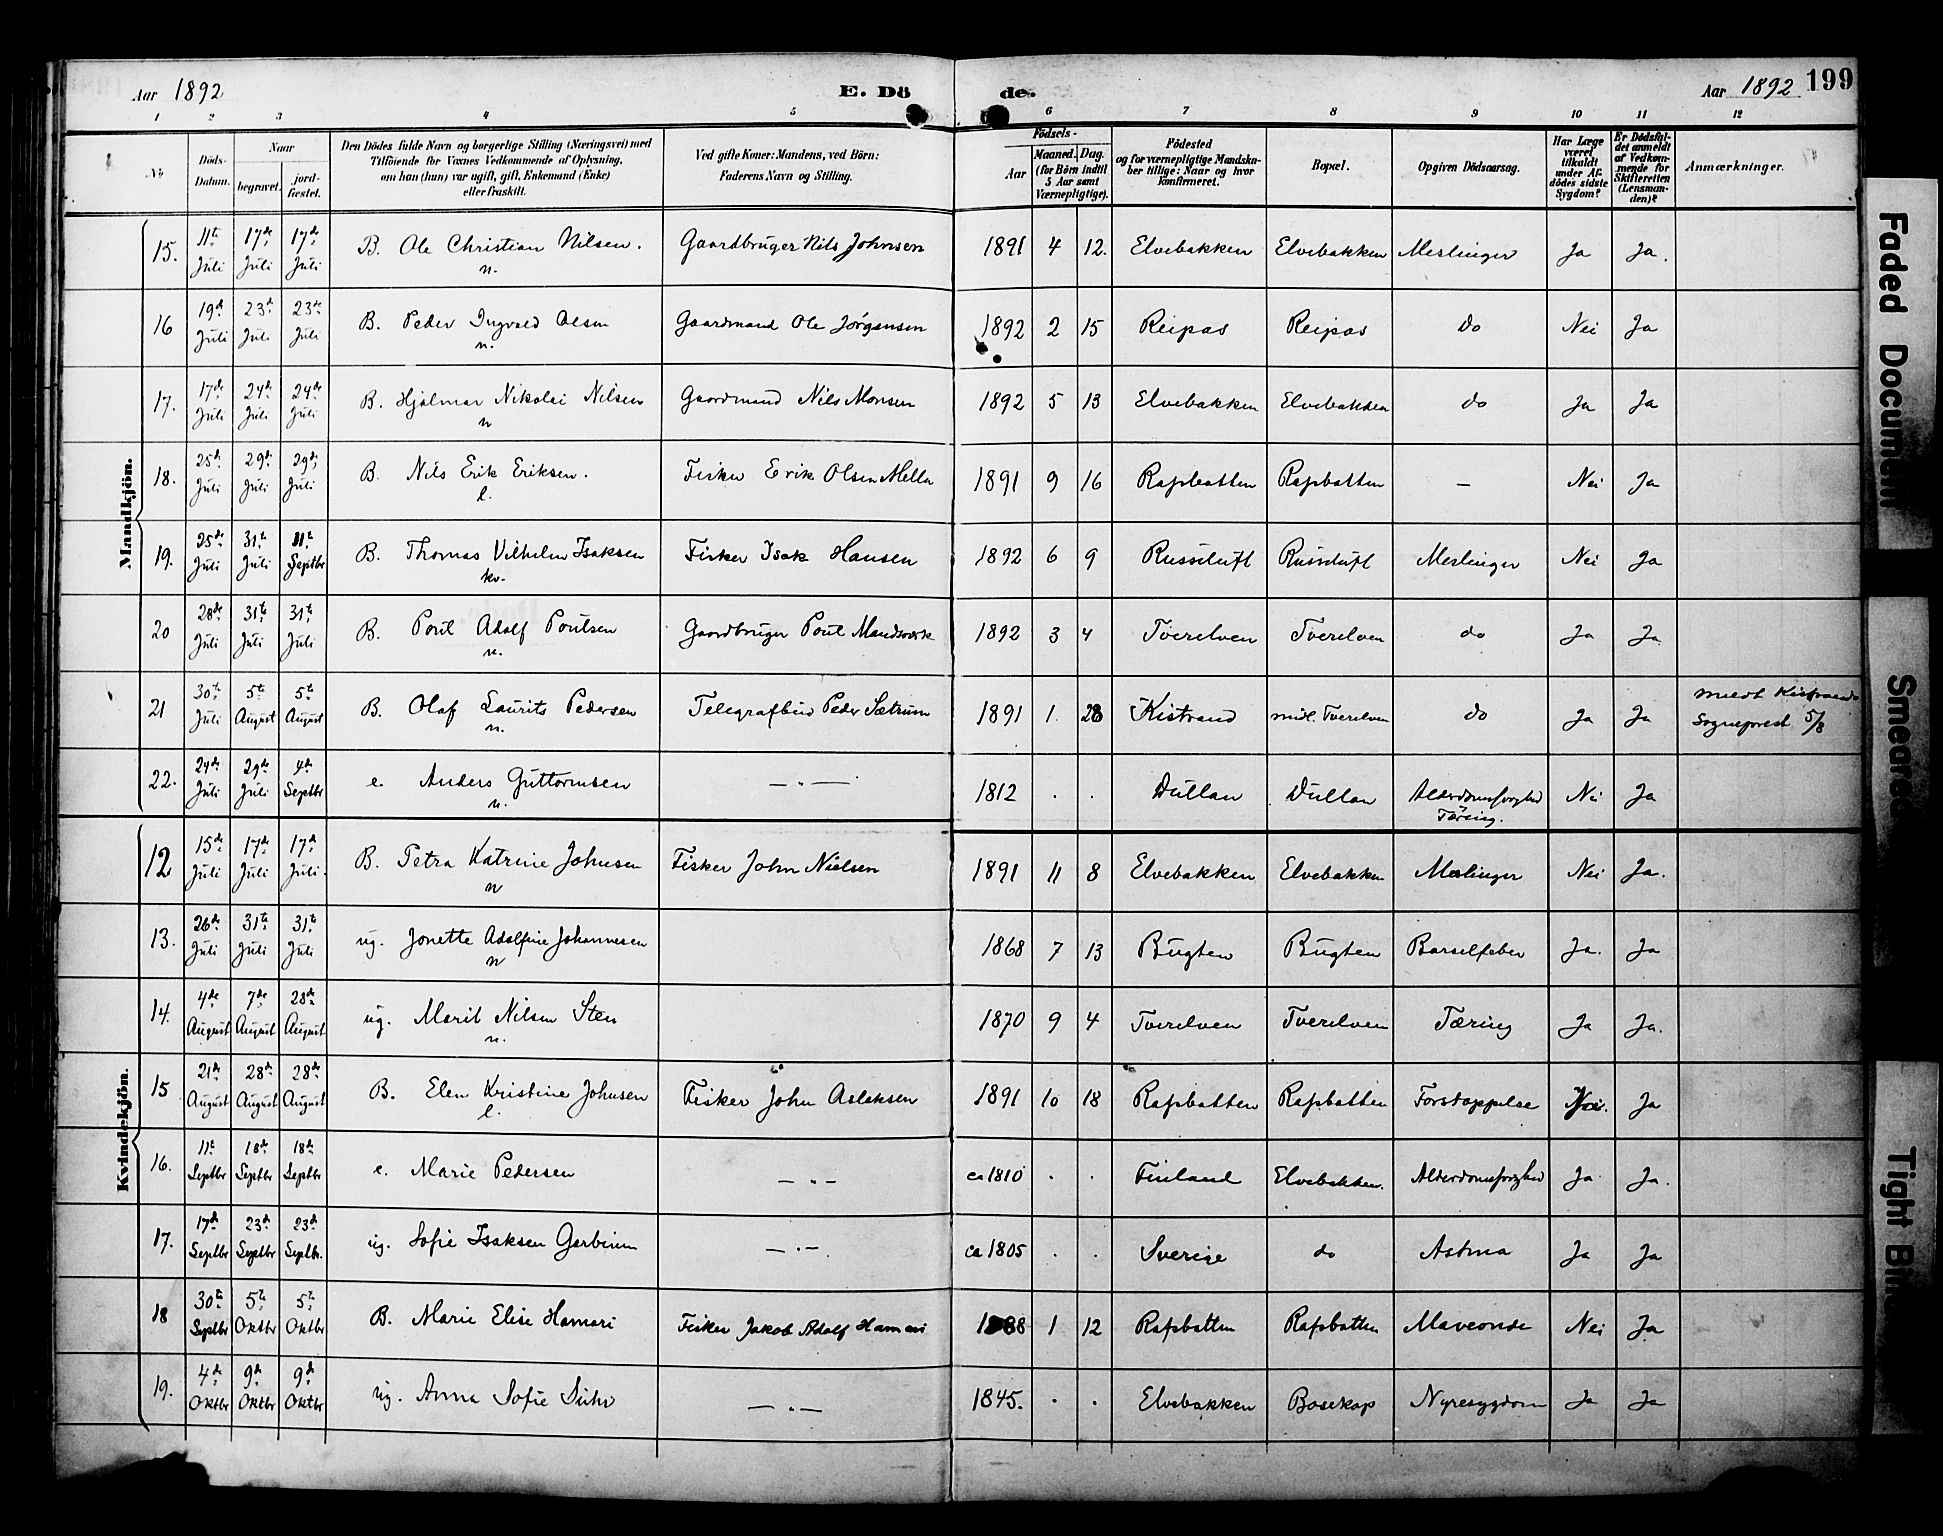 Aar 1892 E. Dö de. Aar 1892 199
1 2 3 4 5 6 7 8 9 10 11 12
No Döds-Datum. Naar begravet. jordfæstet. Den Dödes fulde Navn og borgerlige Stilling (Næringsvei) med Tilföiende for Voxnes Vedkommende af Oplysning, om han (hun) var ugift, gift, Enkemand (Enke) eller fraskilt. Ved gifte Koner: Mandens, ved Börn: Faderens Navn og Stilling. Födsels- Aar Maaned. Dag. (for Börn indtil 5 Aar samt Værnepligtige). Födested og for værnepligtige Mandskaber tillige: Naar og hvor konfirmeret. Bopæl. Opgiven Dödsaarsag. Har Læge været tilkaldt under Afdödes sidste Sygdom? Er Dödsfaldet anmeldt af Vedkommende for Skifteretten (Lensmanden)? Anmærkninger.
Mandkjön.
15. 11te Juli 17de Juli 17de Juli B. Ole Christian Nilsen. n. Gaardbruger Nils Johnsen 1891 4 12. Elvebakken Elvebakken Meslinger Ja Ja.
16 19de Juli 23de Juli 23de Juli B. Peder Ingvald Olsen n. Gaardmand Ole Jörgensen 1892 2 15 Reipas Reipas do Nei Ja
17. 17de Juli 24de Juli 24de Juli B. Hjalmar Nikolai Nilsen n Gaardmand Nils Monsen 1892 5 13 Elvebakken Elvebakken do Ja Ja
18. 25de Juli 29de Juli 29de Juli B. Nils Erik Eriksen. l. Fisker Erik Olsen Mella 1891 9 16 Rafsbotten Rafsbotten — Nei Ja
19. 25de Juli 31te Juli 11te Septbr B. Thomas Vilhelm Isaksen kv. Fisker Isak Hansen 1892 6 9 Russeluft Russeluft Meslinger Nei Ja
20 28de Juli 31te Juli 31te Juli B. Poul Adolf Poulsen n. Gaardbruger Poul 1892 3 4 Tverelven Tverelven do Ja Ja
21 30te Juli 5te August 5te August B. Olaf Laurits Pedersen n. Telegrafbud Peder Sætrum 1891 1. 28 Kistrand midl. Tverelven do Ja Ja meldt Kistrands Sogneprest 5/8
22. 24de Juli 29de Juli 4de Septbr e. Anders Guttormsen n. — " — 1812 . . Dullan Dullan Alderdomssvaghed Tæring. Nei Ja
Kvindekjön.
12 15de Juli 17de Juli 17de Juli. B. Petra Katrine Johnsen n Fisker John Nielsen 1891 11 8 Elvebakken Elvebakken Meslinger Nei Ja.
13. 26de Juli 31te Juli 31te Juli ug. Jonette Adolfine Johannesen n 1868 7 13 Bugten Bugten Barselfeber Ja. Ja
14. 4de August 7de August 28de August ug. Marit Nilsen Sten n. 1870 9 4 Tverelven Tverelven Tæring Ja Ja.
15 21de August 28de August 28de August B. Elen Kristine Johnsen l. Fisker John Aslaksen 1891 10 18 Rafsbotten Rafsbotten Forstoppelse Nei. Ja
16. 11te Septbr 18de Septbr 18de Septbr e. Marie Pedersen — " — ca 1810 . . Finland Elvebakken. Alderdomssvaghed Ja Ja.
17. 17de Septbr 23de Septbr 23de Septbr. ug. Sofie Isaksen — " — ca 1805 . . Sverige do Astma Ja Ja
18 30te Septbr 5te Oktbr 5te Oktbr B. Marie Elise Hamari Fisker Jakob Adolf Hamari 1888 1 12 Rafsbotten Rafsbotten Maveonde Nei Ja
19. 4de Oktbr 9de Oktbr 9de Oktbr ug. Anna Sofie — " — 1845. . . Elvebakken Bosekop Nyresygdom Ja Ja
Faded Document
Smeared
Tight Bi